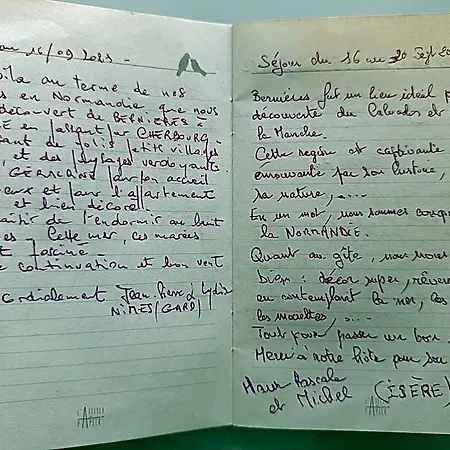 au 16/09/2023 -
au terme de nos
en Normandie que nous
découvert de BERNIERES à
en passant par CHERBOURG -
de jolis petits villages
et des paysages verdoyants
GERMAINE pour son accueil
et pour l'appartement
et bien décoré
de s'endormir au bruit
Cette mer, ces marées
fasciné -
continuation et bon vent
Cordialement Jean-Pierre & Lydie
NIMES (GARD)
Séjour du 16 au 20 Sept 20
Bernières fut un lieu idéal p
découverte du Calvados et
la Manche.
Cette région est captivante
émouvante par son histoire,
sa nature, ....
En un mot, nous sommes conq
la NORMANDIE.
Quant au gîte, nous nous
bien : décor super, rêver
en contemplant la mer, les
les mouettes, ....
Tout pour passer un bon
Merci à notre hôte pour son
Pascale
et Michel (ISÈRE)